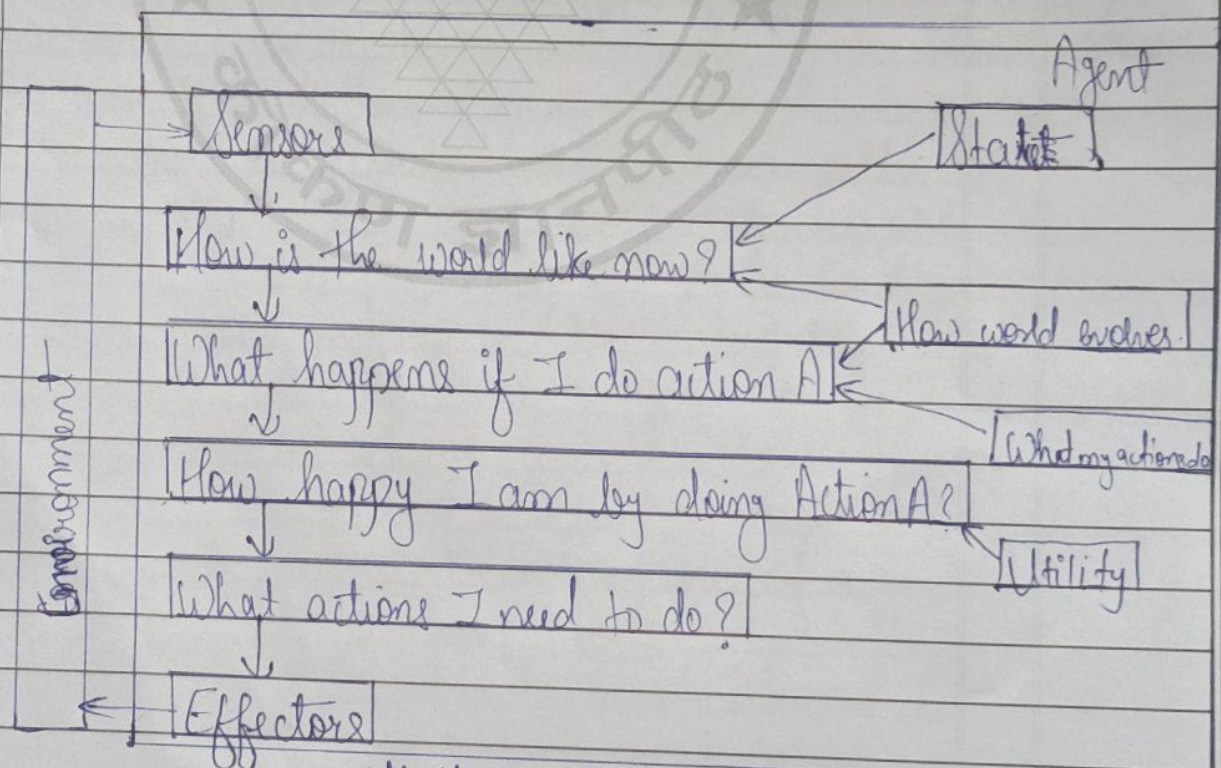 Agent
Sensors
State
How is the world like now?
How world evolves.
What happens if I do action A
What my actions do
How happy I am by doing Action A?
Utility
What actions I need to do?
Effectors
Environment